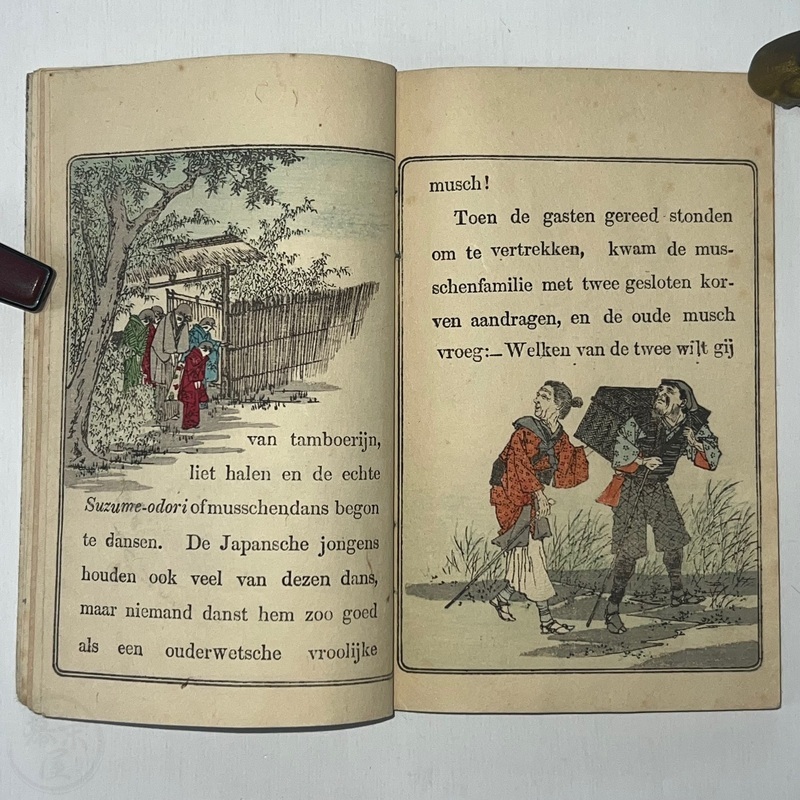 van tamboerijn,
liet halen en de echte
Suzume-odori of musschendans begon
te dansen. De Japansche jongens
houden ook veel van dezen dans,
maar niemand danst hem zoo goed
als een ouderwetsche vroolijke
musch!
Toen de gasten gereed stonden
om te vertrekken, kwam de mus-
schenfamilie met twee gesloten kor-
ven aandragen, en de oude musch
vroeg:—Welken van de twee wilt gij